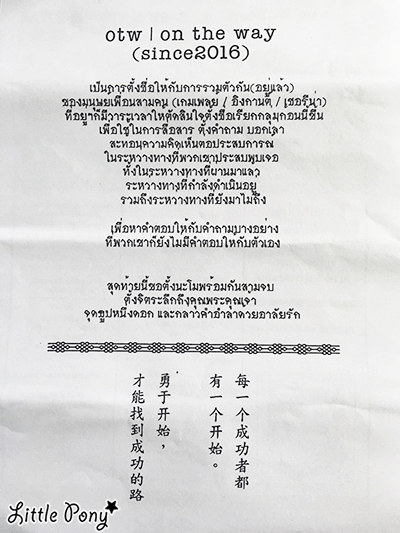 otw | on the way
(since2016)
เป็นการตั้งชื่อให้กับการรวมตัวกัน(อยู่แล้ว)
ของมนุษย์เพื่อนสามคน (เกมเพลย์ / อิงกานต์ / เชอรีน่า)
ที่อยู่ก็มีวาระเวลาให้ตัดสินใจตั้งชื่อเรียกกลุ่มก้อนนี้ขึ้น
เพื่อใช้ในการสื่อสาร ตั้งคำถาม บอกเล่า
สะท้อนความคิดเห็นต่อประสบการณ์
ในระหว่างทางที่พวกเขาประสบพบเจอ
ทั้งในระหว่างทางที่ผ่านมาแล้ว
ระหว่างทางที่กำลังดำเนินอยู่
รวมถึงระหว่างทางที่ยังมาไม่ถึง
เพื่อหาคำตอบให้กับคำถามบางอย่าง
ที่พวกเขาก็ยังไม่มีคำตอบให้กับตัวเอง
สุดท้ายนี้ขอตั้งนะโมพร้อมกันสามจบ
ตั้งจิตระลึกถึงคุณพระคุณเจ้า
จุดธูปหนึ่งดอก และกล่าวคำอำลาด้วยอาลัยรัก
每一个成功者都
有一个开始。
勇于开始，
才能找到成功的路
Little Pony